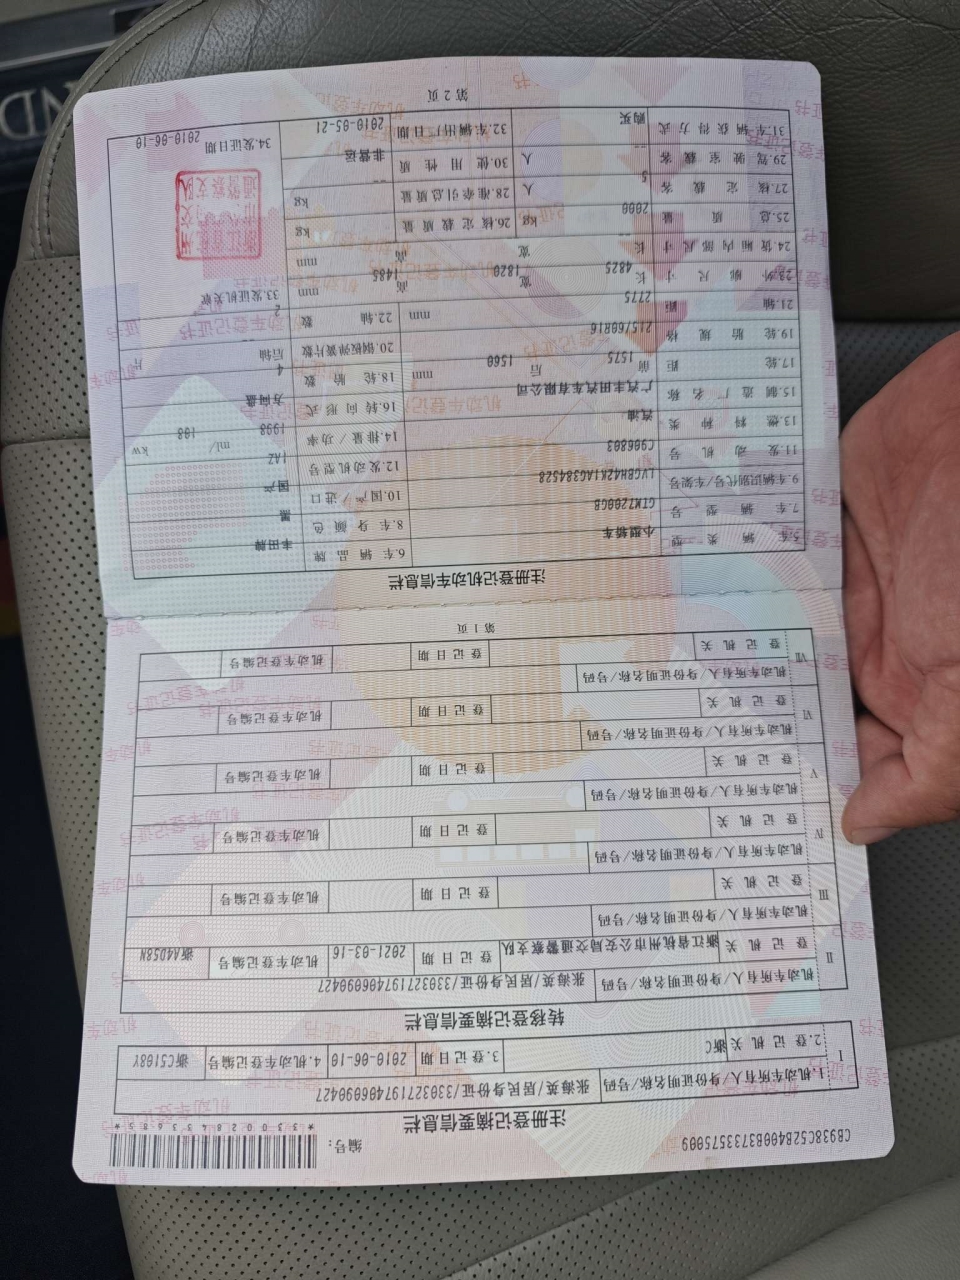 CB938C52B400B3733575009 编号:
注册登记摘要信息栏
I 1.机动车所有人/身份证明名称/号码 张海英/居民身份证/330327197406090427
2.登记机关 浙C 3.登记日期 2010-06-10 4.机动车登记编号 浙C5108Y
转移登记摘要信息栏
II 机动车所有人/身份证明名称/号码 张海英/居民身份证/330327197406090427
登记机关 浙江省杭州市公安局交通警察支队 登记日期 2021-03-16 机动车登记编号 浙AA4D58N
III 机动车所有人/身份证明名称/号码
登记机关 登记日期 机动车登记编号
IV 机动车所有人/身份证明名称/号码
登记机关 登记日期 机动车登记编号
V 机动车所有人/身份证明名称/号码
登记机关 登记日期 机动车登记编号
VI 机动车所有人/身份证明名称/号码
登记机关 登记日期 机动车登记编号
VII 机动车所有人/身份证明名称/号码
登记机关 登记日期 机动车登记编号
第 1 页
注册登记机动车信息栏
5.车辆类型 小型轿车 6.车辆品牌 丰田牌
7.车辆型号 GTM7200GB 8.车身颜色 黑
9.车辆识别代号/车架号 LVGBH42K1AG384528 10.国产/进口 国产
11.发动机号 C906803 12.发动机型号 1AZ
13.燃料种类 汽油 14.排量/功率 1998 ml/ 108 kw
15.制造厂名称 广汽丰田汽车有限公司 16.转向形式 方向盘
17.轮距 前 1575 后 1560 mm 18.轮胎数 4
19.轮胎规格 215/60R16 20.钢板弹簧片数 后轴 -- 片
21.轴距 2775 mm 22.轴数 2
23.外廓尺寸 长 4825 宽 1820 高 1485 mm 33.发证机关章
24.货厢内部尺寸 长 宽 高 mm
25.总质量 2000 kg 26.核定载质量 -- kg
27.核定载客 5 人 28.准牵引总质量 -- kg
29.驾驶室载客 -- 人 30.使用性质 非营运
31.车辆获得方式 购买 32.车辆出厂日期 2010-05-21 34.发证日期 2010-06-10
第 2 页